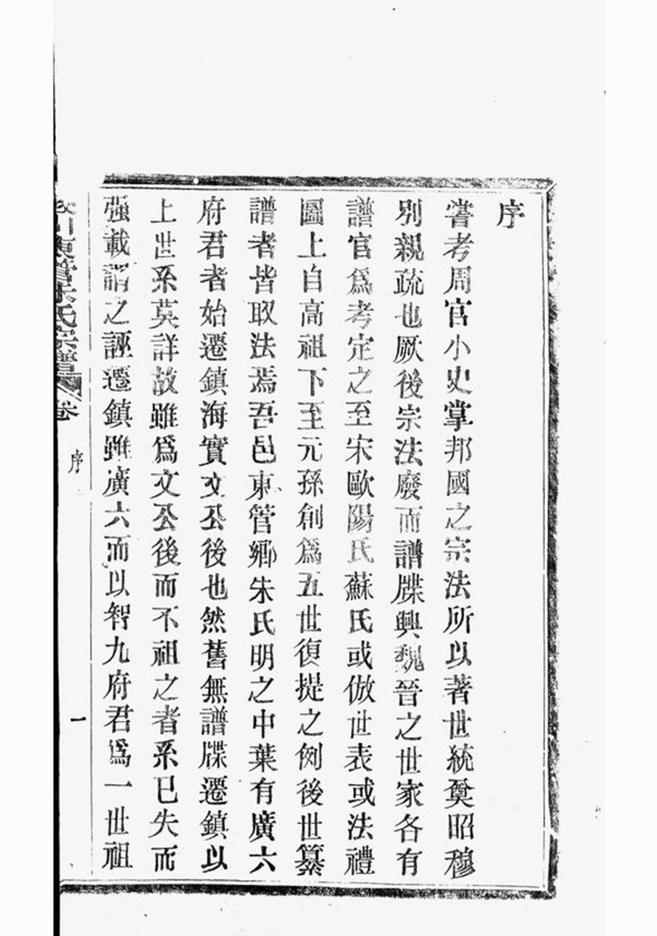 序
嘗考周官小史掌邦國之宗法所以著世統奠昭穆
別親疏也厥後宗法廢而譜牒興魏晉之世家各有
譜官爲考定之至宋歐陽氏蘇氏或倣世表或法禮
圖上自高祖下至元孫創爲五世復提之例後世纂
譜者皆取法焉吾邑東管鄉朱氏明之中葉有廣六
府君者始遷鎮海實文公後也然舊無譜牒遷鎮以
上世系莫詳故雖爲文公後而不祖之者系已失而
强載謂之誣遷鎮雖廣六而以智九府君爲一世祖
川東管朱氏宗譜
卷
序
一